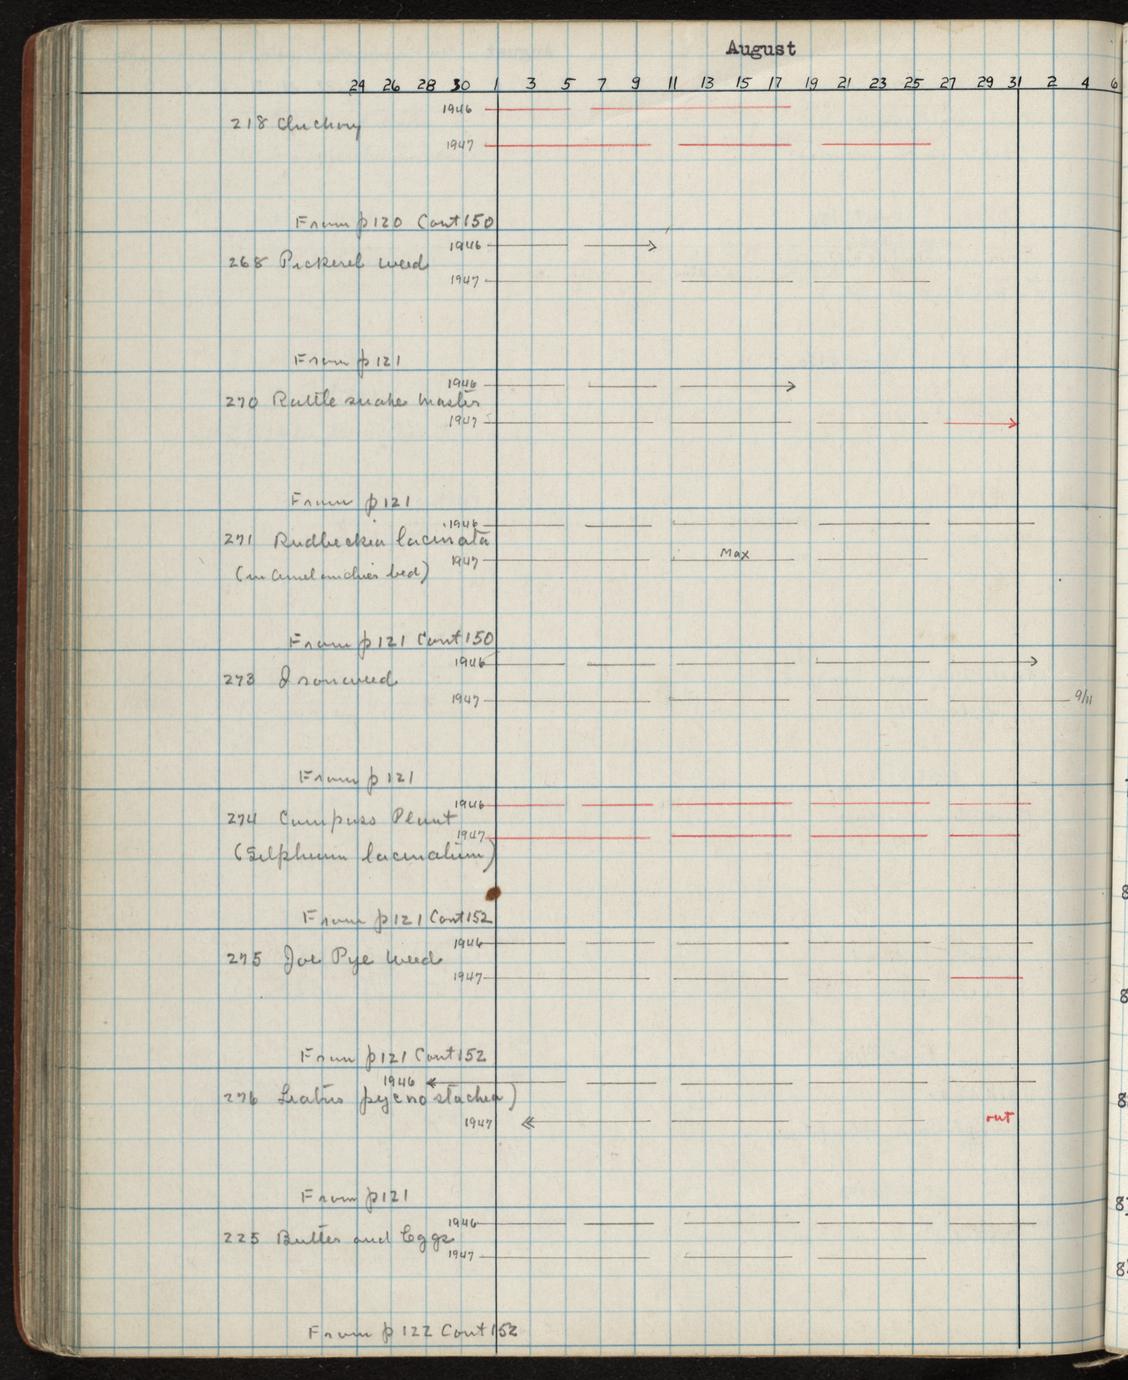 August
24 26 28 30 1 3 5 7 9 11 13 15 17 19 21 23 25 27 29 31 2 4 6
1946
218 Chickory
1947
From p120 Cont 150
1946
268 Pickerel weed
1947
From p121
1946
270 Rattle snake master
1947
From p121
1946
271 Rudbeckia lacinata
1947 Max
(in Amelanchier bed)
From p121 Cont 150
1946
273 Ironweed
1947 9/11
From p121
1946
274 Compass Plant
1947
(Silphium lacinatium)
From p121 Cont 152
1946
275 Joe Pye Weed
1947
From p121 Cont 152
1946
276 Liatris pycnostachia)
1947 out
From p121
1946
225 Butter and Eggs
1947
From p 122 Cont 152